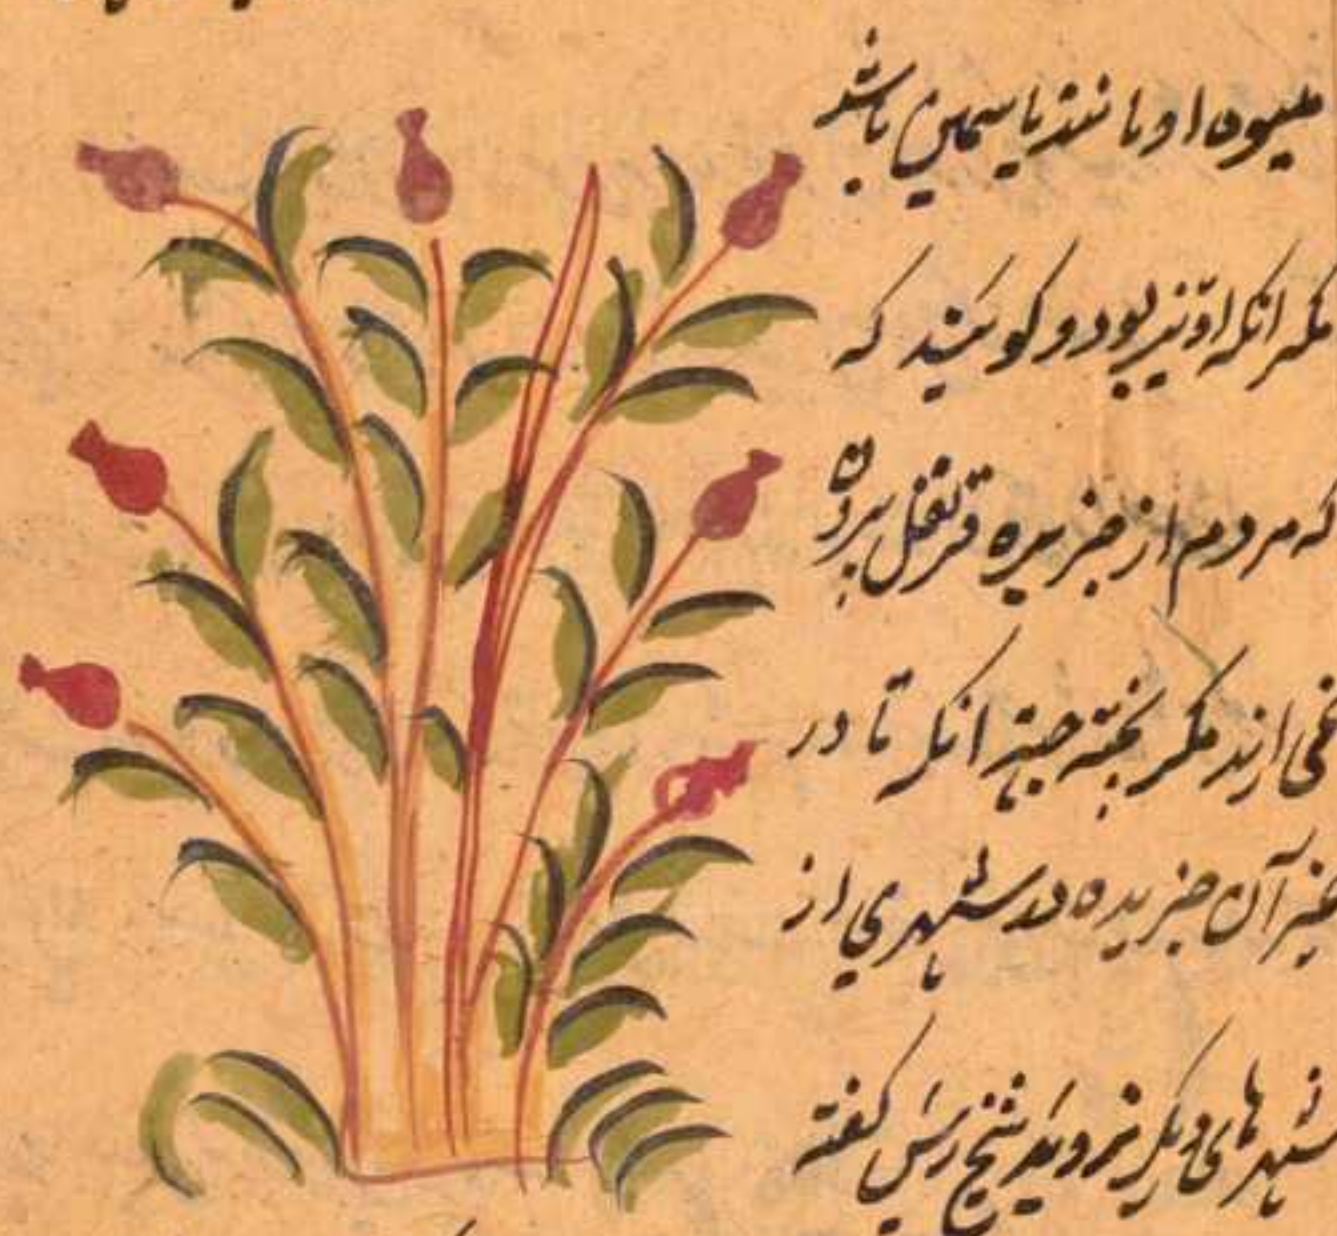 میوه او مانند یاسمین باشد
مکر انکه او تیز بود و کویند که
که مردم از جزیره قرنفل بیرون
نمی ارند مکر پخته جهة انکه تا در
غیر آن جزیره در شهری از
شهرهای دیکر نروید شیخ رئیس کفته